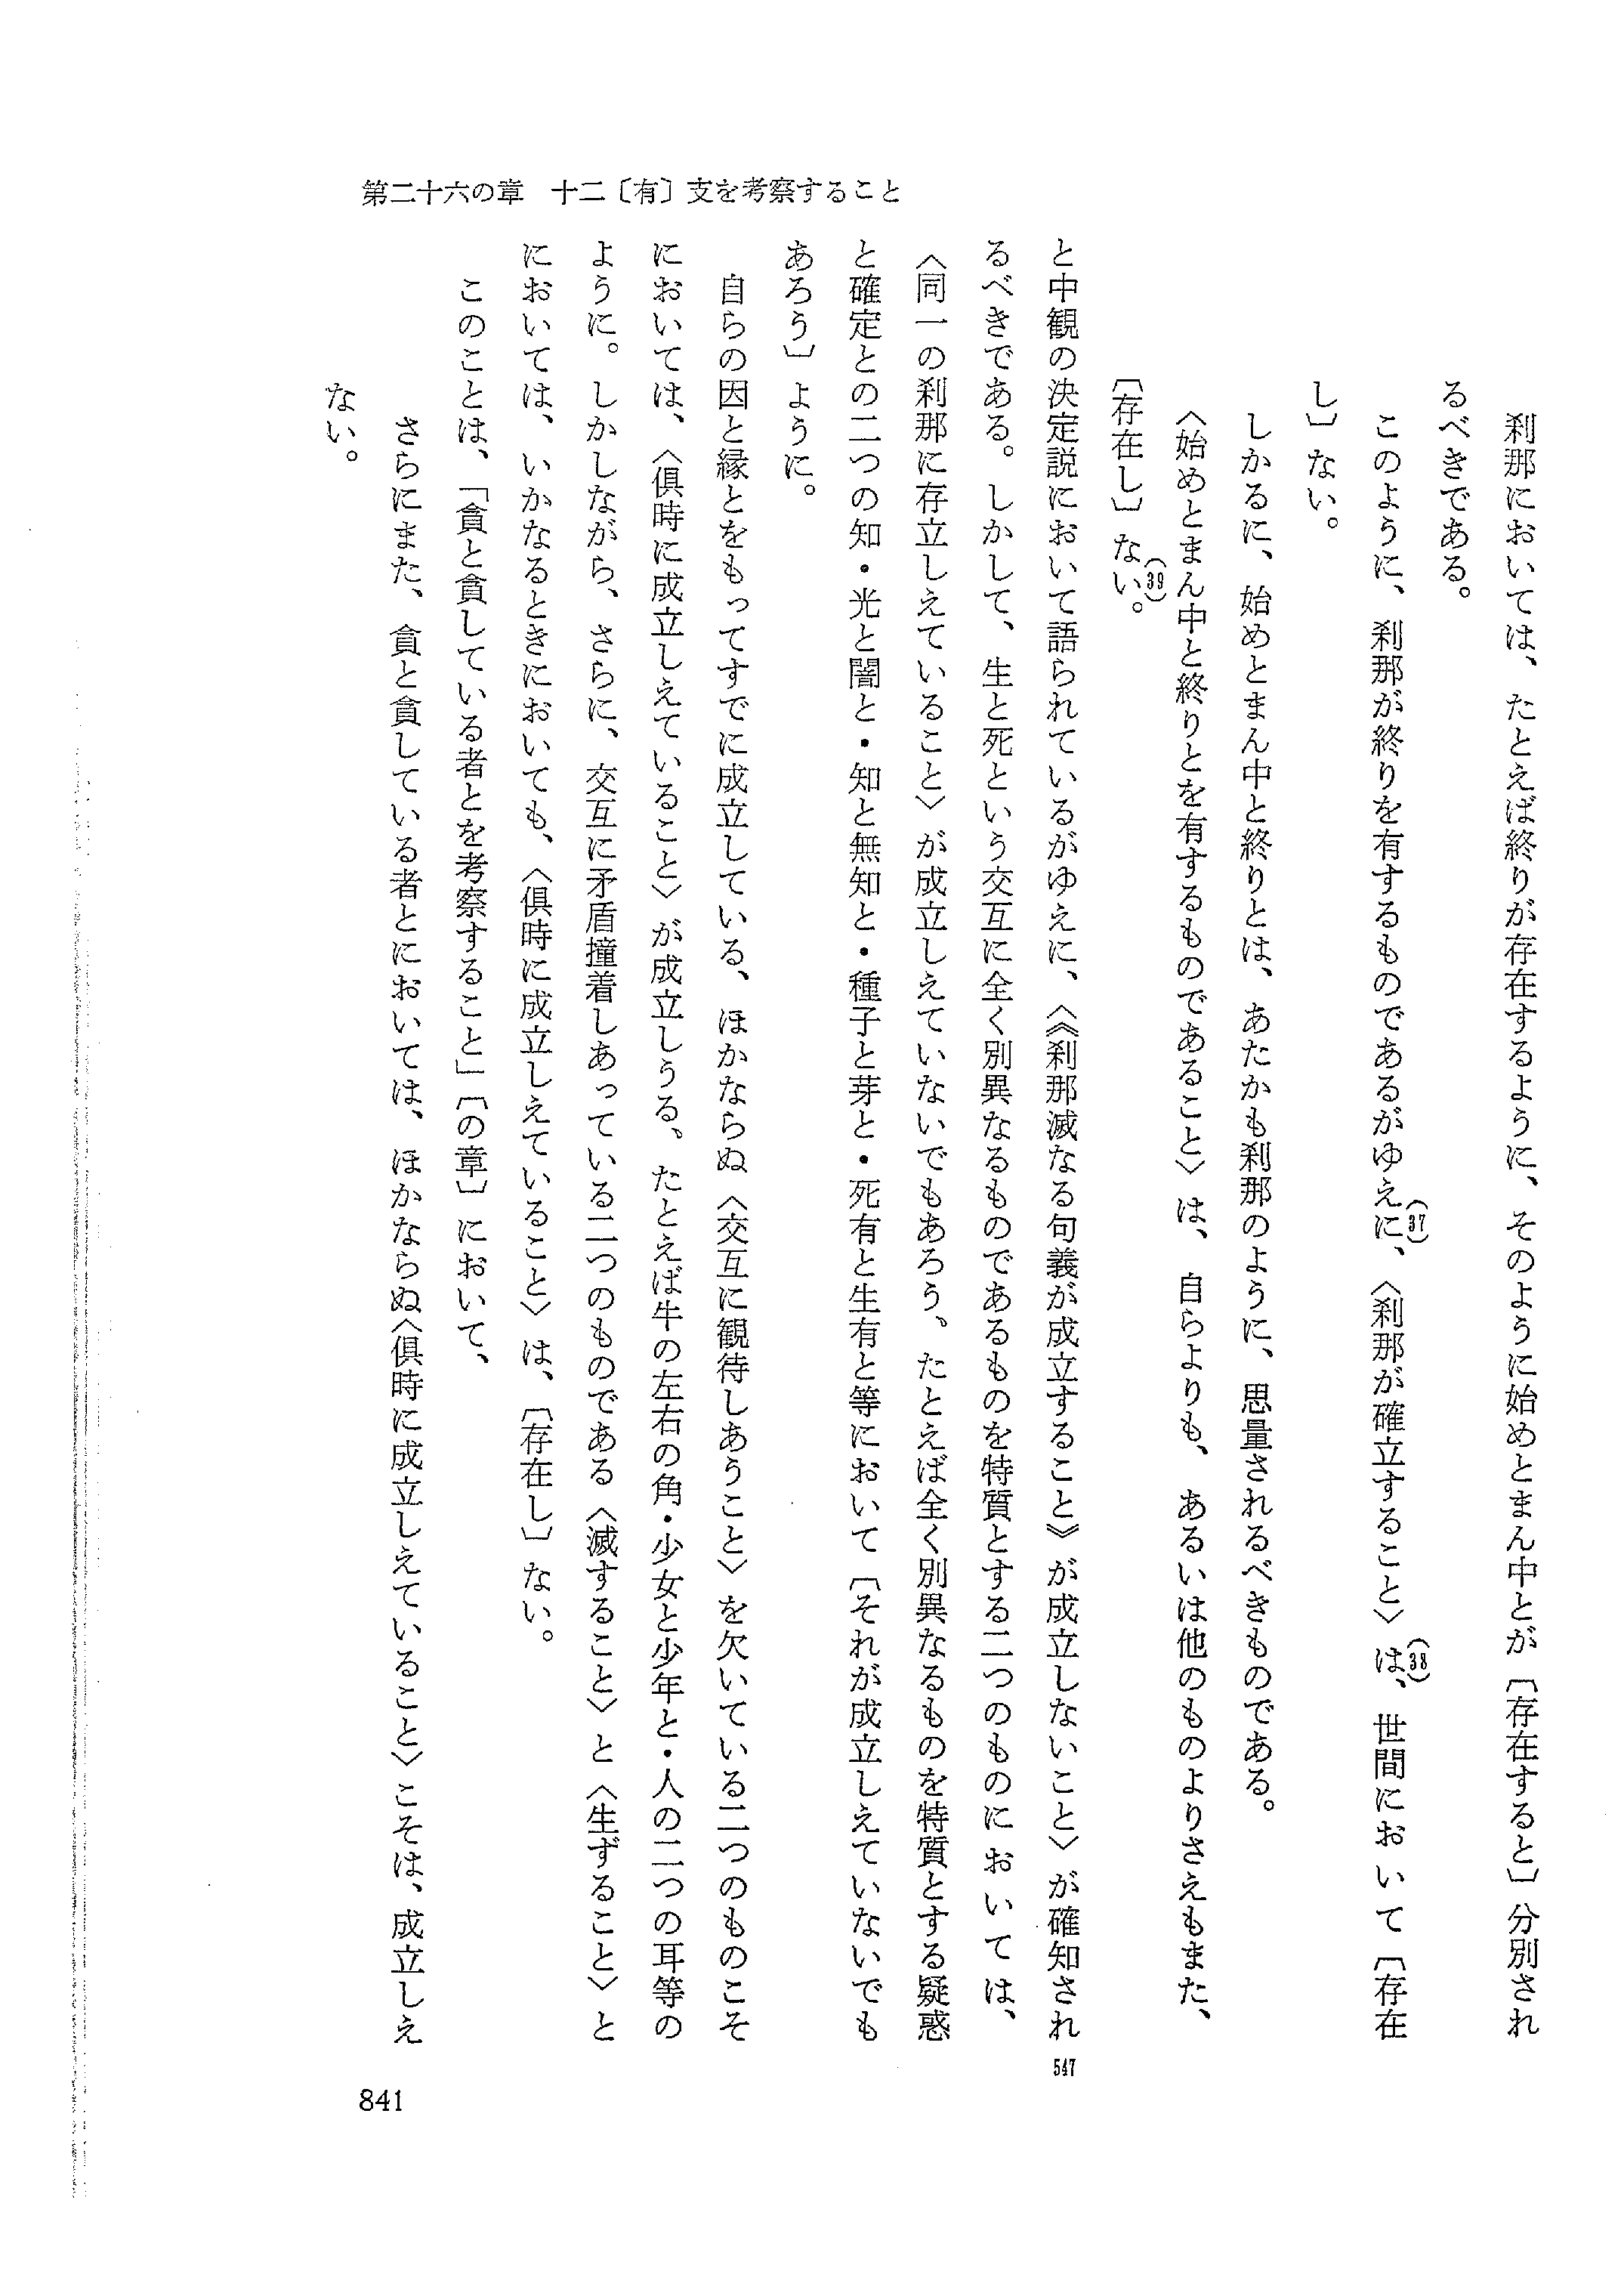 第二十六の章　十二〔有〕支を考察すること
刹那においては、たとえば終りが存在するように、そのように始めとまん中とが〔存在すると〕分別され
るべきである。
このように、刹那が終りを有するものであるがゆえに(37)、〈刹那が確立すること〉は(38)、世間において〔存在
し〕ない。
しかるに、始めとまん中と終りとは、あたかも刹那のように、思量されるべきものである。
〈始めとまん中と終りとを有するものであること〉は、自らよりも、あるいは他のものよりさえもまた、
〔存在し〕ない(39)。
と中観の決定説において語られているがゆえに、〈《刹那滅なる句義が成立すること》が成立しないこと〉が確知され
547
るべきである。しかして、生と死という交互に全く別異なるものであるものを特質とする二つのものにおいては、
〈同一の刹那に存立しえていること〉が成立しえていないでもあろう、たとえば全く別異なるものを特質とする疑惑
と確定との二つの知・光と闇と・知と無知と・種子と芽と・死有と生有と等において〔それが成立しえていないでも
あろう〕ように。
自らの因と縁とをもってすでに成立している、ほかならぬ〈交互に観待しあうこと〉を欠いている二つのものこそ
においては、〈俱時に成立しえていること〉が成立しうる、たとえば牛の左右の角・少女と少年と・人の二つの耳等の
ように。しかしながら、さらに、交互に矛盾撞着しあっている二つのものである〈滅すること〉と〈生ずること〉と
においては、いかなるときにおいても、〈俱時に成立しえていること〉は、〔存在し〕ない。
このことは、「貪と貪している者とを考察すること」〔の章〕において、
さらにまた、貪と貪している者とにおいては、ほかならぬ〈俱時に成立しえていること〉こそは、成立しえ
ない。
841